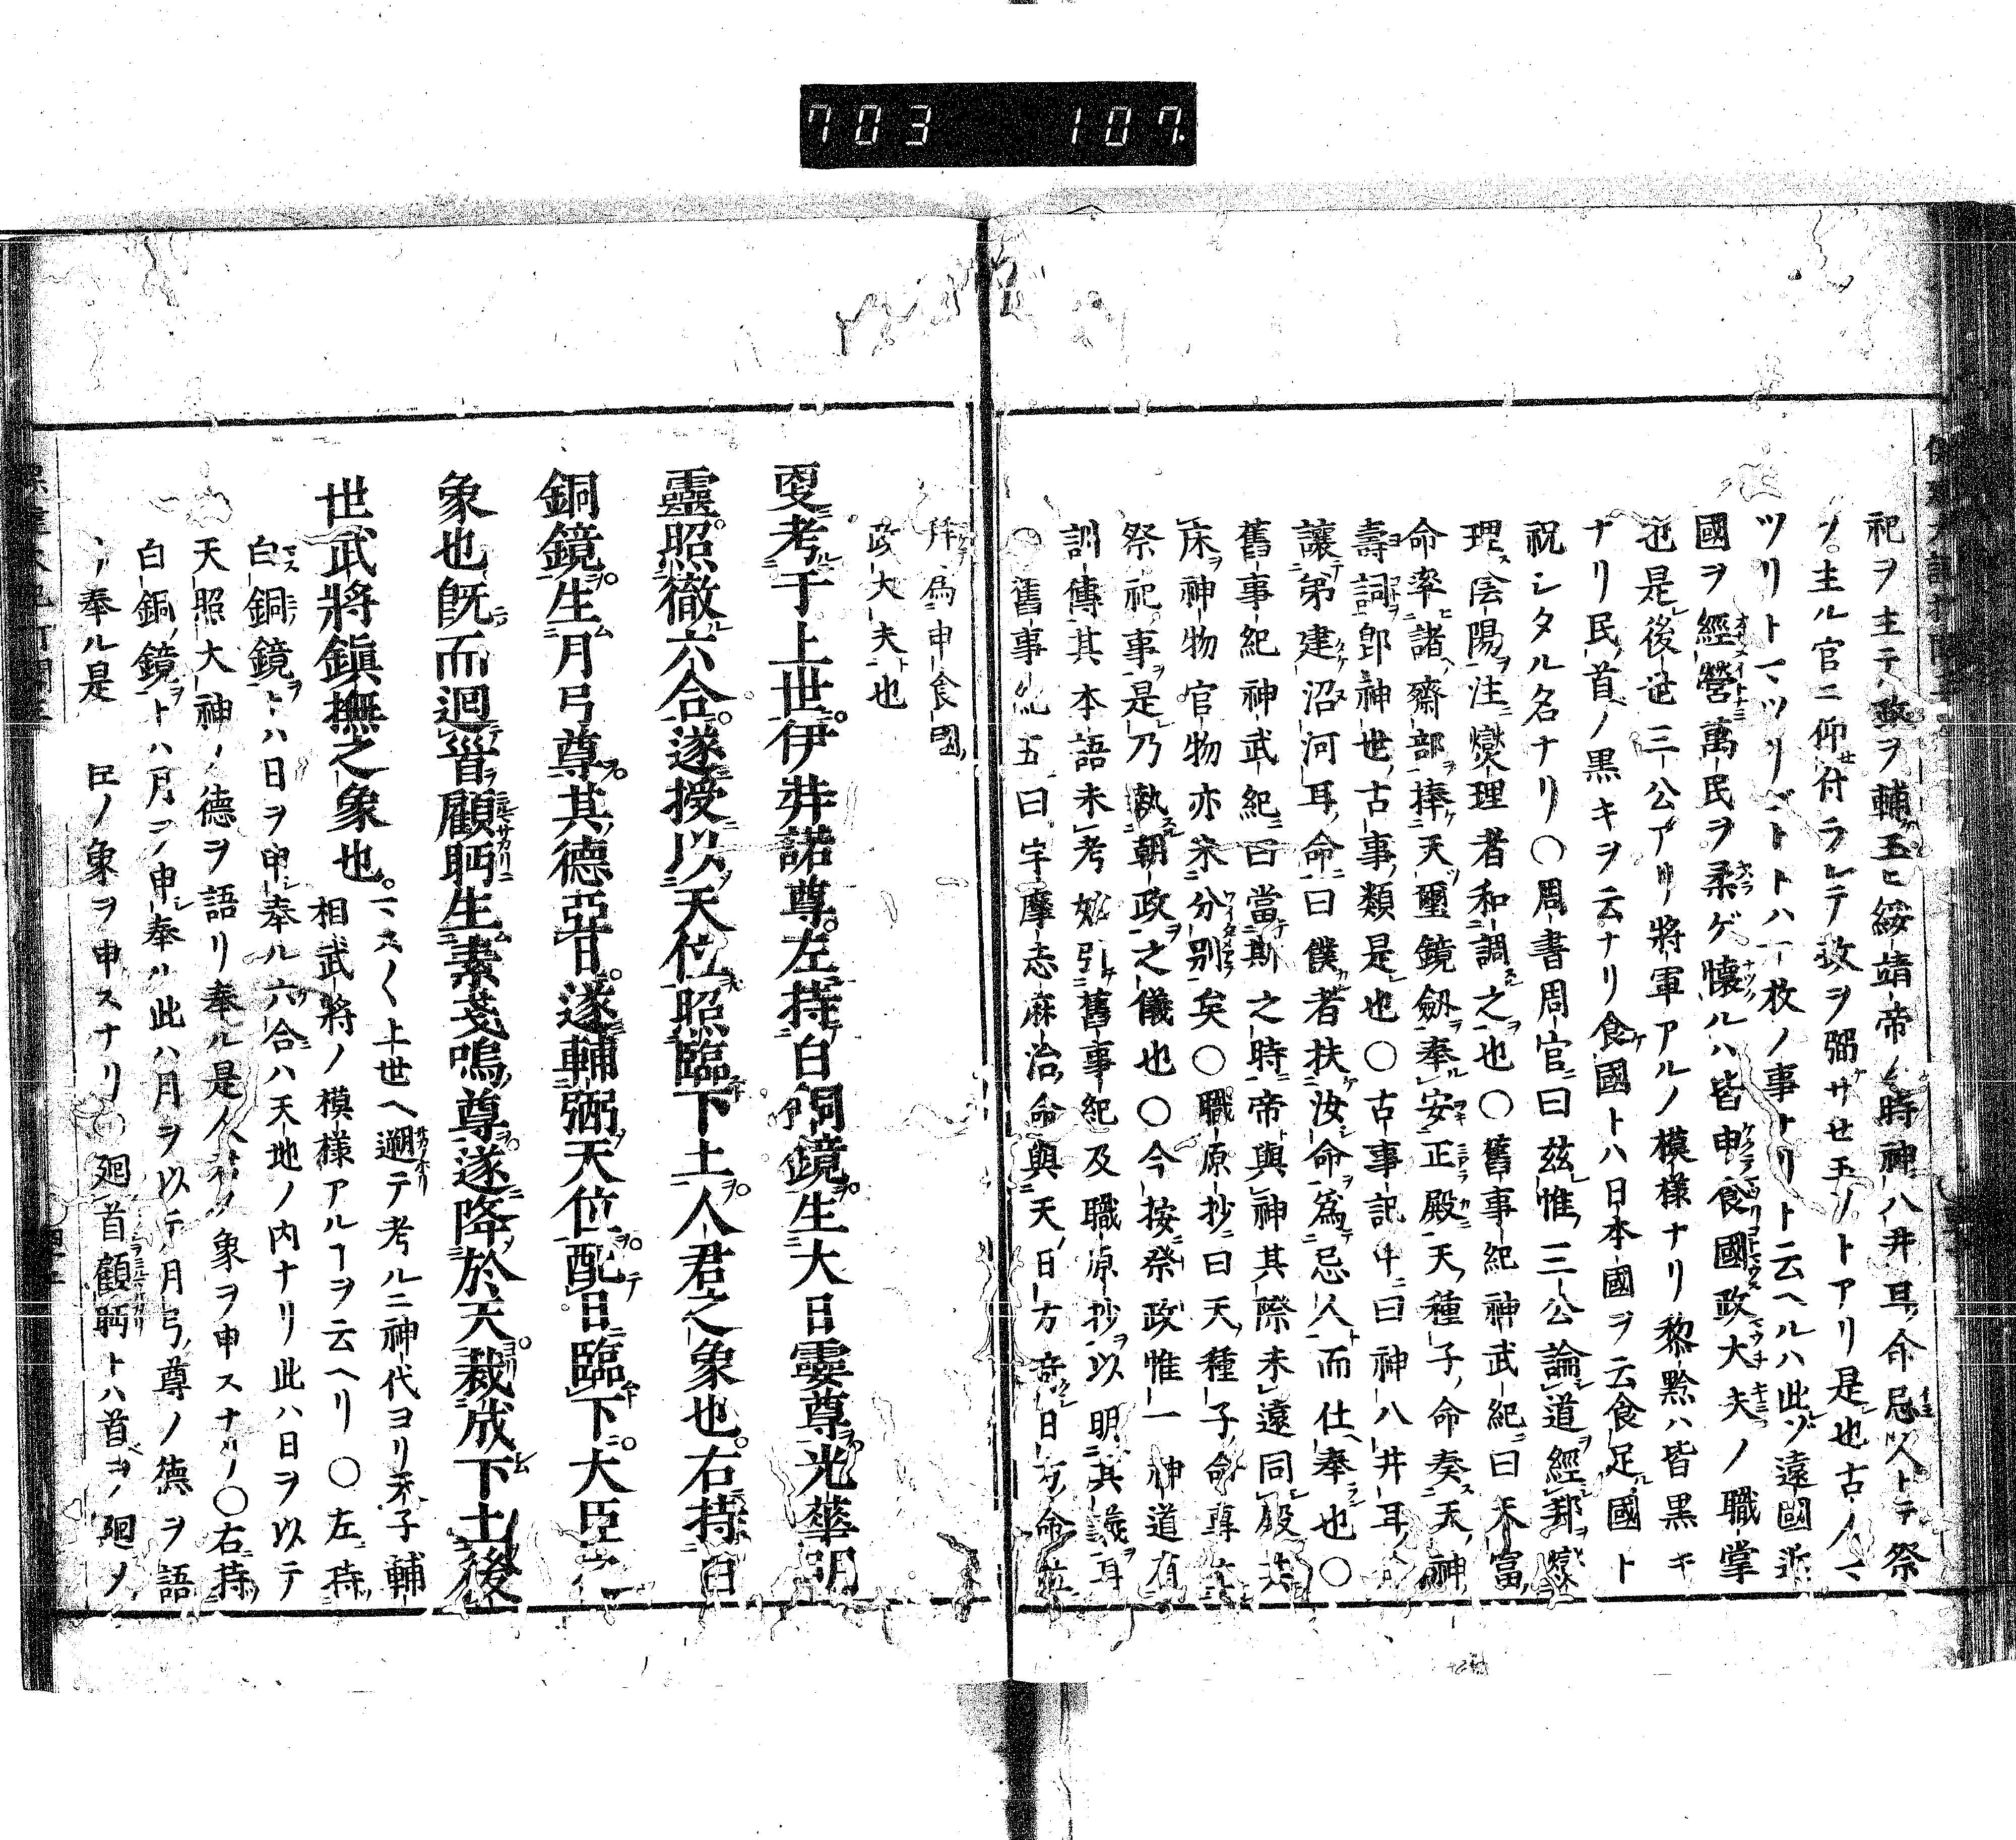 703 107.
祀ヲ主テ政ヲ輔玉ヒ綏靖帝ノ時神八井耳命忌人トテ祭
ノ主ル官ニ仰付ラレテ政ヲ弼サセ玉ノトアリ是也古ノ人マ
ツリトマツリゴトトハ一枚ノ事ナリト云ヘルハ此ゾ遠國近
國ヲ經營萬民ヲ柔ゲ懷ルハ皆申食國政大夫ノ職掌
也是後世三公アリ將軍アルノ模様ナリ黎黔ハ皆黒キ
ナリ民首ノ黒キヲ云ナリ食國トハ日本國ヲ云食足國ト
祝シタル名ナリ〇周書周官曰茲惟三公論道經邦燮
理陰陽注燮理者和調之也〇舊事紀神武紀曰天富
命率諸齋部捧天璽鏡劔奉安正殿天種子命奏天神
壽詞即神世古事類是也〇古事記中曰神八井耳命
讓弟建沼河耳命曰僕者扶汝命爲忌人而仕奉也〇
舊事紀神武紀曰當斯之時帝與神其際未遠同殿共
床神物官物亦未分別矣〇職原抄曰天種子命專
祭祀事是乃執朝政之儀也〇今按祭政惟一神道有
訓傳其本語未考始引舊事紀及職原抄以明其義耳
〇舊事紀五曰宇摩志麻治命與天日方奇日方命
拜爲申食國
政大夫也
更考于上世伊弉諾尊左持白銅鏡生大日孁尊光華明
靈照徹六合遂授以天位照臨下土人君之象也右持白
銅鏡生月弓尊其德亞日遂輔弼天位配日臨下大臣
象也既而迴首顧眄生素戔嗚尊遂降於天裁成下土後
世武將鎭撫之象也
マスく上世ヘ遡テ考ルニ神代ヨリ天子輔
相武將ノ模様アルヿヲ云ヘリ〇左持
白銅鏡トハ日ヲ申奉ル六合ハ天地ノ内ナリ此ハ日ヲ以テ
天照大神ノ德ヲ語リ奉ル是人君ノ象ヲ申スナリ〇右持
白銅鏡トハ月ヲ申奉ル此ハ月ヲ以テ月弓尊ノ德ヲ語
リ奉ル是臣ノ象ヲ申スナリ〇廻首顧眄トハ首ヲ廻ノ